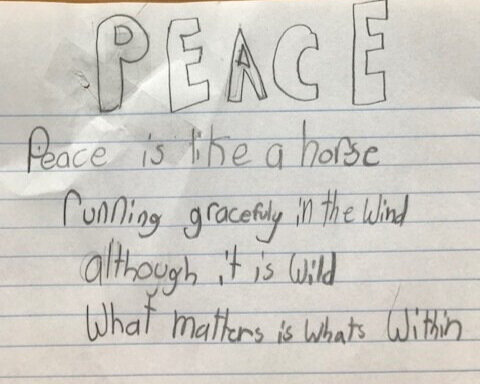 PEACE
Peace is like a horse
running gracefuly in the wind
although it is wild
What matters is whats within